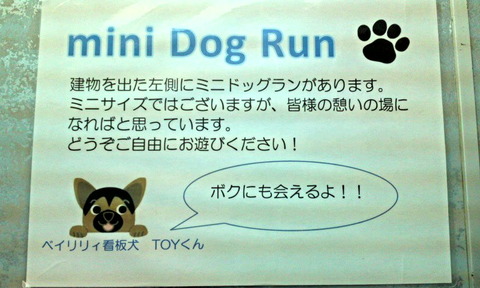 mini Dog Run
建物を出た左側にミニドッグランがあります。
ミニサイズではございますが、皆様の憩いの場に
なればと思っています。
どうぞご自由にお遊びください！
ボクにも会えるよ！！
ベイリリィ看板犬　TOYくん